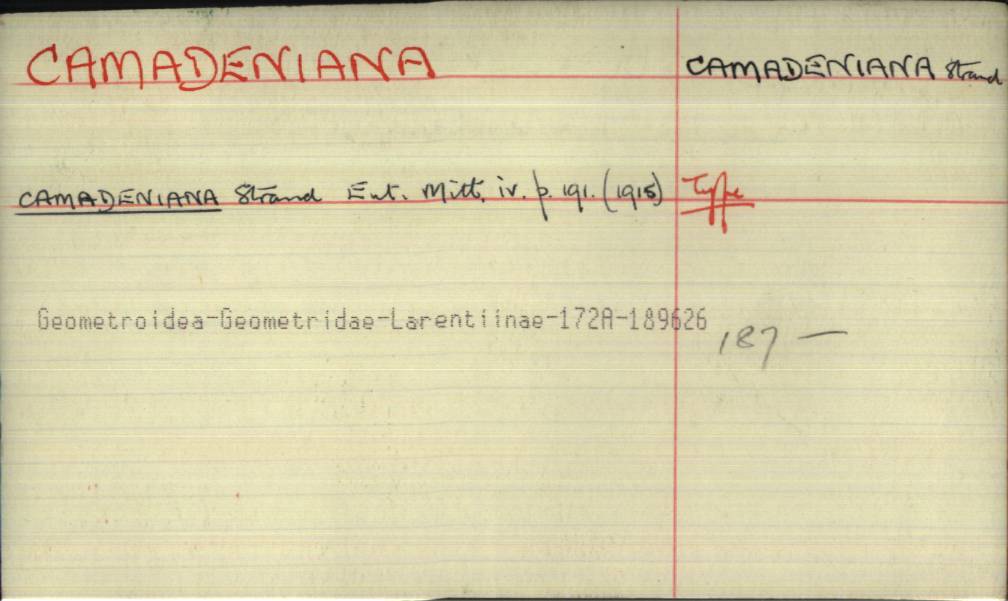 CAMADENIANA
CAMADENIANA Strand
CAMADENIANA Strand Ent. Mitt. iv. p. 191. (1915) Type
Geometroidea-Geometridae-Larentiinae-172A-189626
187 —